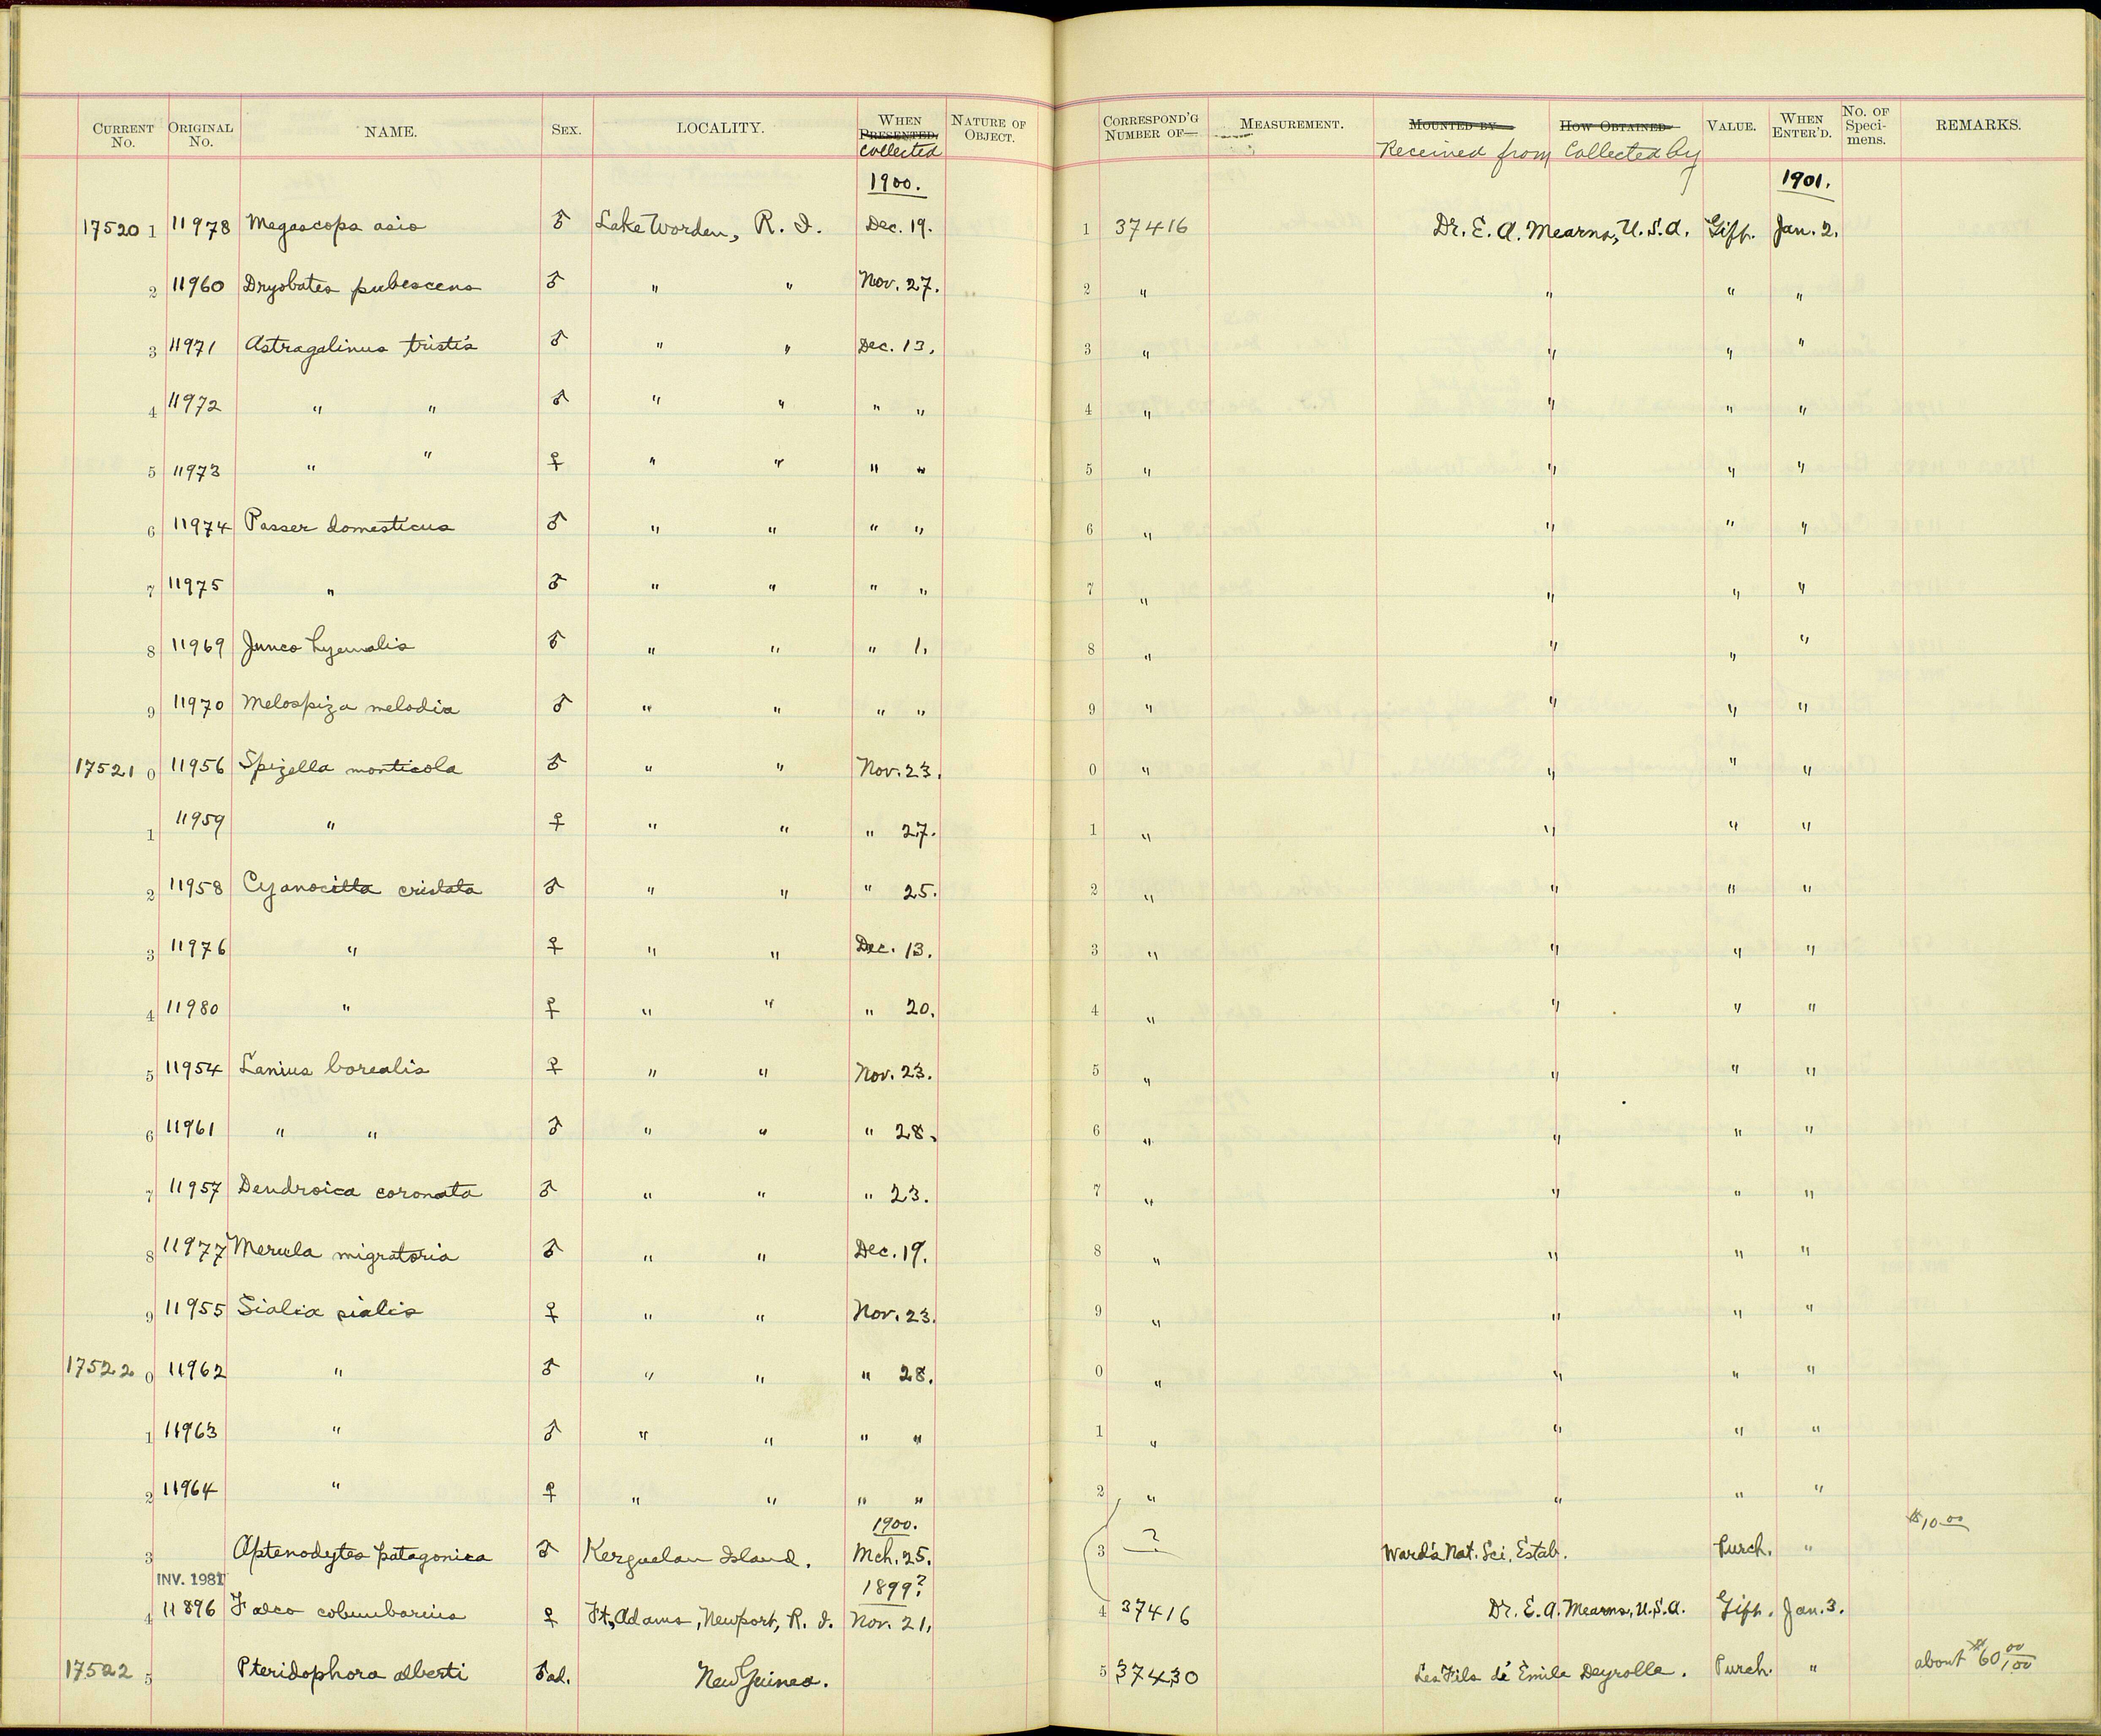 CURRENT No. ORIGINAL No. NAME. SEX. LOCALITY. WHEN PRESENTED. collected NATURE OF OBJECT. CORRESPOND'G NUMBER OF— MEASUREMENT. MOUNTED BY Received from HOW OBTAINED Collected by VALUE. WHEN ENTER'D. No. OF Speci-mens. REMARKS.
1900. 1901.
17520 1 11978 Megascops asio ♂ Lake Worden, R. I. Dec. 19. 1 37416 Dr. E. A. Mearns, U.S.A. Gift. Jan. 2.
2 11960 Dryobates pubescens ♂ " " Nov. 27. 2 " " " "
3 11971 Astragalinus tristis ♂ " " Dec. 13. 3 " " " "
4 11972 " " ♂ " " " " 4 " " " "
5 11973 " " ♀ " " " " 5 " " " "
6 11974 Passer domesticus ♂ " " " " 6 " " " "
7 11975 " ♂ " " " " 7 " " " "
8 11969 Junco hyemalis ♂ " " " 1. 8 " " " "
9 11970 Melospiza melodia ♂ " " " " 9 " " " "
17521 0 11956 Spizella monticola ♂ " " Nov. 23. 0 " " " "
1 11959 " ♀ " " " 27. 1 " " " "
2 11958 Cyanocitta cristata ♂ " " " 25. 2 " " " "
3 11976 " ♀ " " Dec. 13. 3 " " " "
4 11980 " ♀ " " " 20. 4 " " " "
5 11954 Lanius borealis ♀ " " Nov. 23. 5 " " " "
6 11961 " " ♂ " " " 28. 6 " " " "
7 11957 Dendroica coronata ♂ " " " 23. 7 " " " "
8 11977 Merula migratoria ♂ " " Dec. 19. 8 " " " "
9 11955 Sialia sialis ♀ " " Nov. 23. 9 " " " "
17522 0 11962 " ♂ " " " 28. 0 " " " "
1 11963 " ♂ " " " " 1 " " " "
2 11964 " ♀ " " " " 2 " " " "
1900. $10.00
3 Aptenodytes patagonica ♂ Kerguelan Island. Mch. 25. 3 ? Ward's Nat. Sci. Estab. Purch. "
INV. 1981 1899?
4 11896 Falco columbarius ♀ Ft. Adams, Newport, R. I. Nov. 21. 4 37416 Dr. E. A. Mearns, U.S.A. Gift. Jan. 3.
17522 5 Pteridophora alberti ♂ ad. New Guinea. 5 37430 Les Fils de Émile Deyrolle. Purch. " about $60 00/100